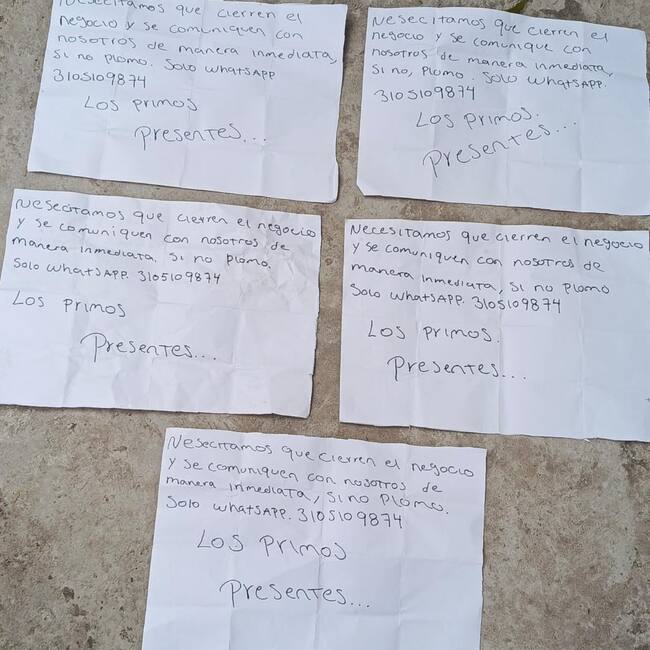 Nesecitamos que cierren el
negocio y se comuniquen con
nosotros de manera inmediata,
si no plomo. Solo WhatsAPP
3105109874
Los primos
Presentes...
Nesecitamos que cierren el
negocio y se comunique con
nosotros de manera inmediata,
si no, Plomo. Solo WhatsAPP.
3105109874
Los primos.
Presentes...
Nesecitamos que cierren el negocio
y se comuniquen con nosotros de
manera inmediata, si no plomo.
Solo WhatsAPP. 3105109874
Los primos
Presentes...
Necesitamos que cierren el negocio
y se comuniquen con nosotros de
manera inmediata, si no plomo
Solo WhatsAPP. 3105109874
Los primos.
Presentes...
Nesecitamos que cierren el negocio
y se comuniquen con nosotros de
manera inmediata, si no Plomo.
Solo WhatsAPP. 3105109874
Los primos
Presentes...